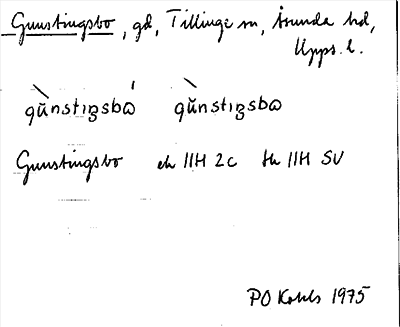 Gunstingsbo, gd, Tillinge sn, Åsunda hd,
Upps. l.
gŭ̀nstiꞑsbɷ́ gŭ̀nstiꞑsbɷ
Gunstingsbo ek IIH 2c hk IIH SV
PO Kohls 1975